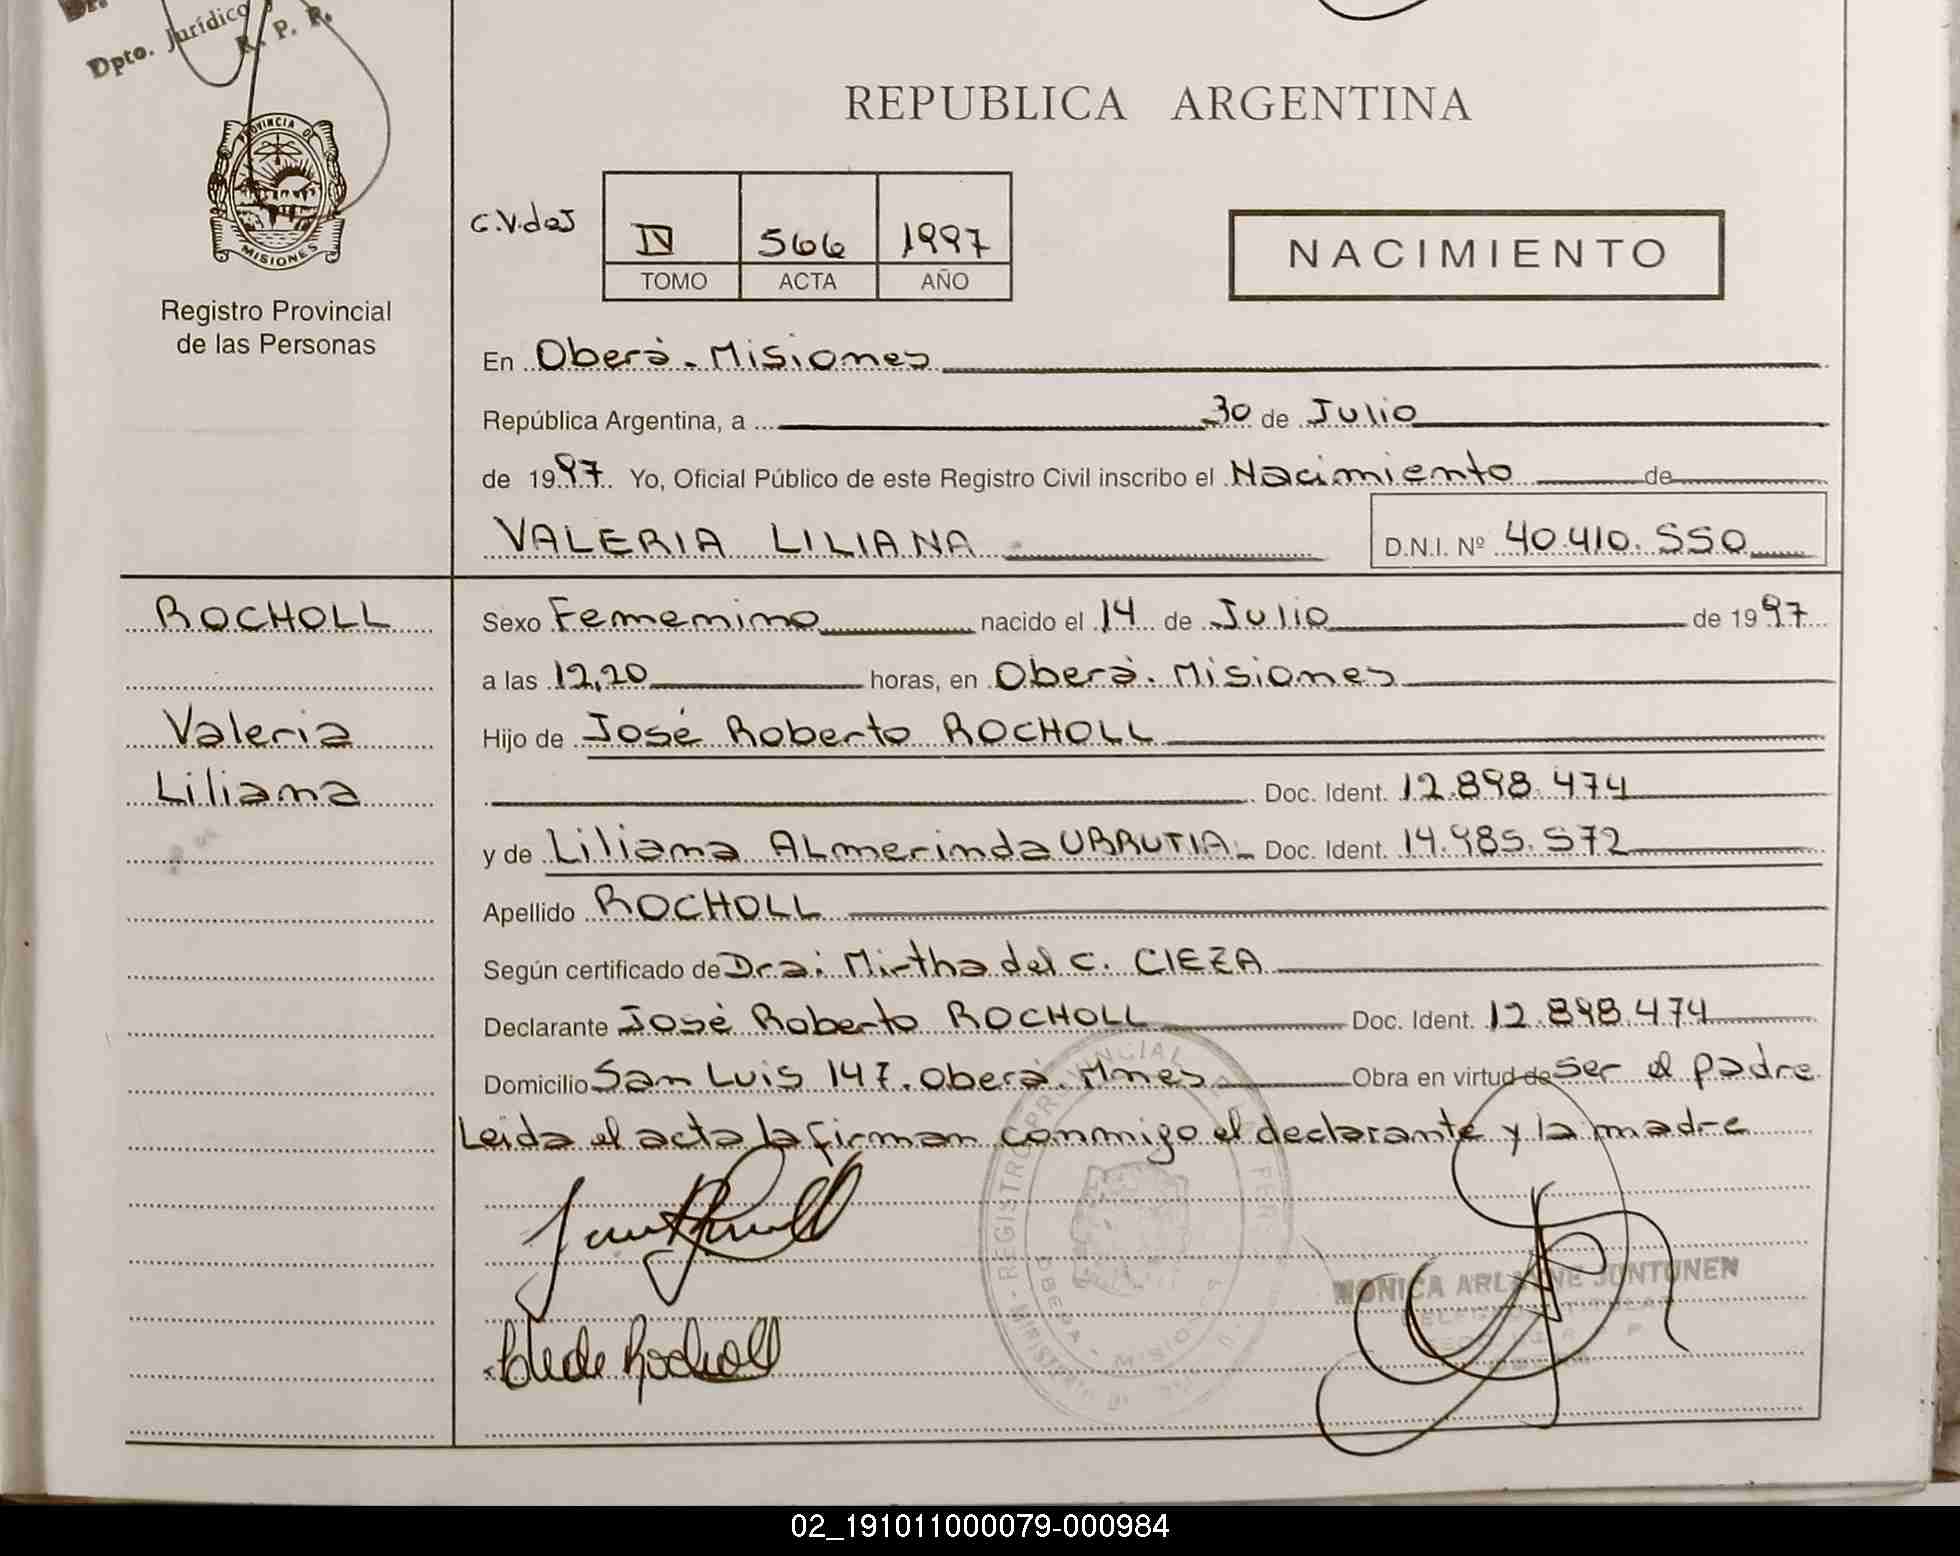 Dpto. Jurídico
R. P. P.
PROVINCIA DE
MISIONES
Registro Provincial
de las Personas
REPUBLICA ARGENTINA
C.V.deJ
IV 566 1997
TOMO ACTA AÑO
NACIMIENTO
En Oberá. Misiones
República Argentina, a 30 de Julio
de 1997 Yo, Oficial Público de este Registro Civil inscribo el Nacimiento de
VALERIA LILIANA D.N.I. Nº 40.410.550
ROCHOLL
Valeria
Liliana
Sexo Femenino nacido el 14 de Julio de 1997
a las 12,20 horas, en Oberá. Misiones
Hijo de José Roberto ROCHOLL
Doc. Ident. 12.898.474
y de Liliana ALmerinda URRUTIA Doc. Ident. 14.985.572
Apellido ROCHOLL
Según certificado de Dra: Mirtha del C. CIEZA
Declarante José Roberto ROCHOLL Doc. Ident. 12.898.474
Domicilio San Luis 147. Oberá. Mnes Obra en virtud de ser el padre
Leida el acta la firman conmigo el declarante y la madre
REGISTRO PROVINCIAL DE
OBERA - MISIONES
de Rocholl
MONICA ARLAINE JUNTUNEN
02_191011000079-000984